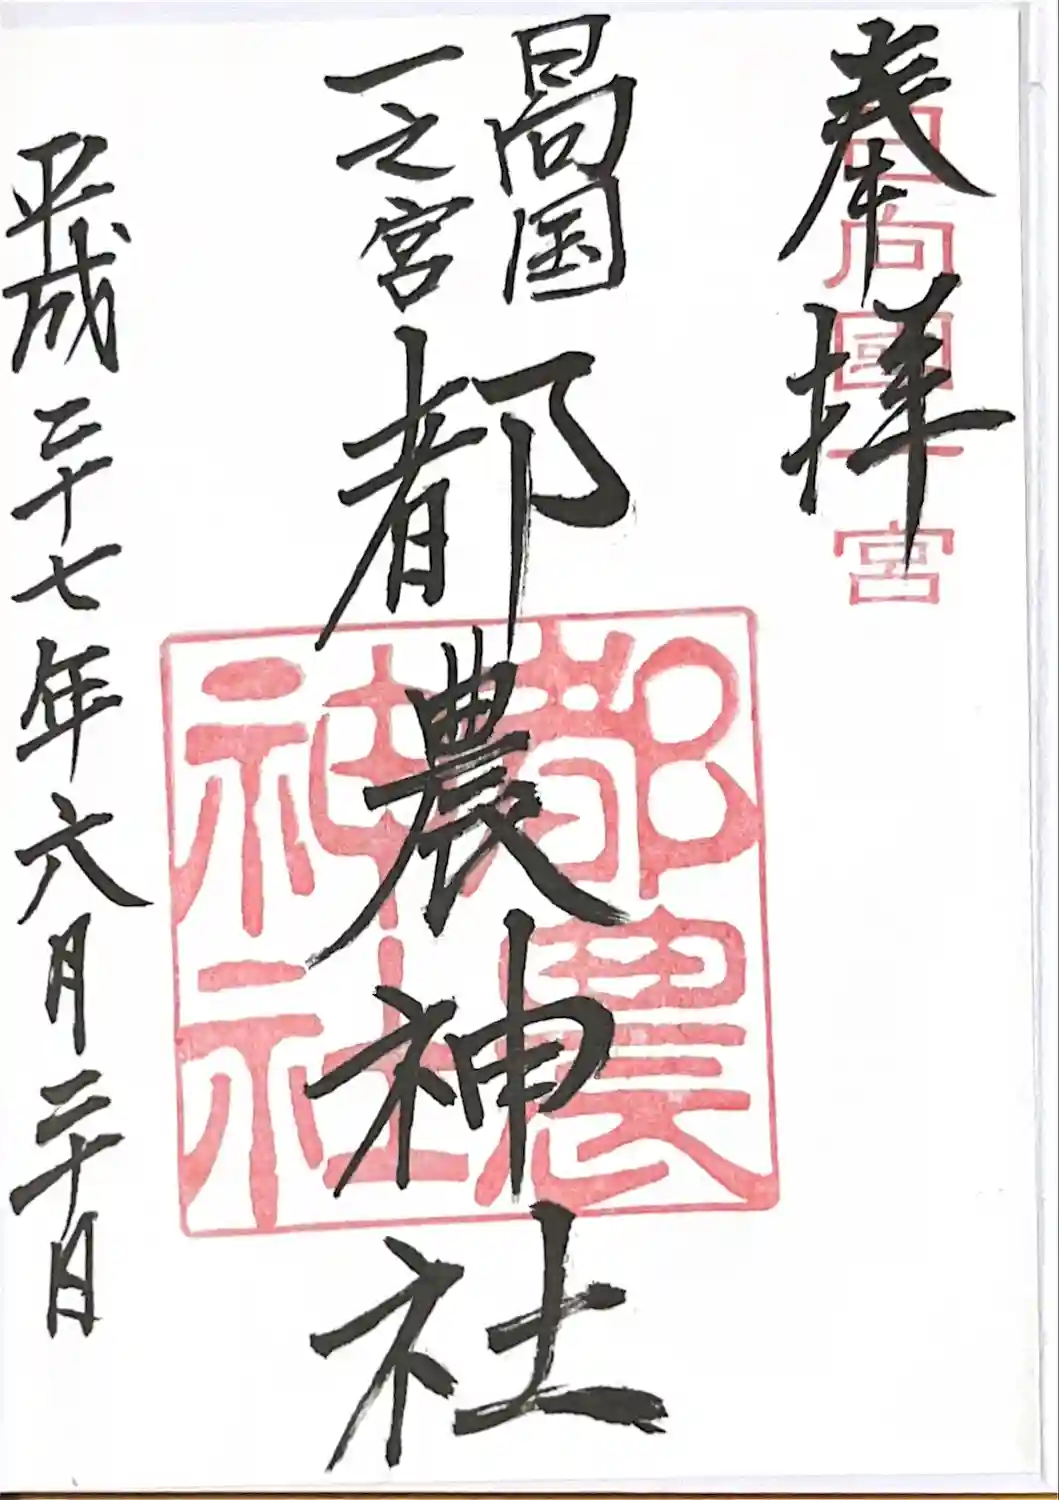 奉拝
日向國一宮
日向国
一之宮
都農神社
都農
神社
平成二十七年六月二十日